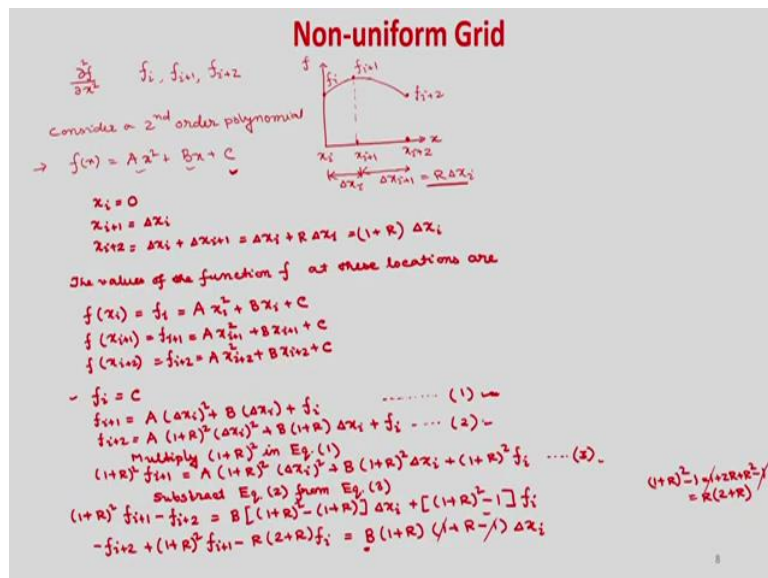 Non-uniform Grid
∂²f/∂x² f_i, f_{i+1}, f_{i+2}
Consider a 2nd order polynomial
→ f(x) = Ax² + Bx + C
f
f_i
f_{i+1}
f_{i+2}
x
x_i x_{i+1} x_{i+2}
Δx_i Δx_{i+1} = RΔx_i
x_i = 0
x_{i+1} = Δx_i
x_{i+2} = Δx_i + Δx_{i+1} = Δx_i + RΔx_i = (1+R) Δx_i
The values of the function f at these locations are
f(x_i) = f_i = A x_i² + Bx_i + C
f(x_{i+1}) = f_{i+1} = A x_{i+1}² + Bx_{i+1} + C
f(x_{i+2}) = f_{i+2} = A x_{i+2}² + Bx_{i+2} + C
f_i = C
f_{i+1} = A(Δx_i)² + B(Δx_i) + f_i ........ (1)
f_{i+2} = A(1+R)²(Δx_i)² + B(1+R) Δx_i + f_i .... (2)
Multiply (1+R)² in Eq.(1)
(1+R)² f_{i+1} = A(1+R)²(Δx_i)² + B(1+R)²Δx_i + (1+R)² f_i .... (3)
Substract Eq.(2) from Eq.(3)
(1+R)² f_{i+1} - f_{i+2} = B[(1+R)² - (1+R)] Δx_i + [(1+R)² - 1] f_i
-f_{i+2} + (1+R)² f_{i+1} - R(2+R)f_i = B(1+R)(1+R-1) Δx_i
(1+R)² - 1 = 1+2R+R² - 1
= R(2+R)
8